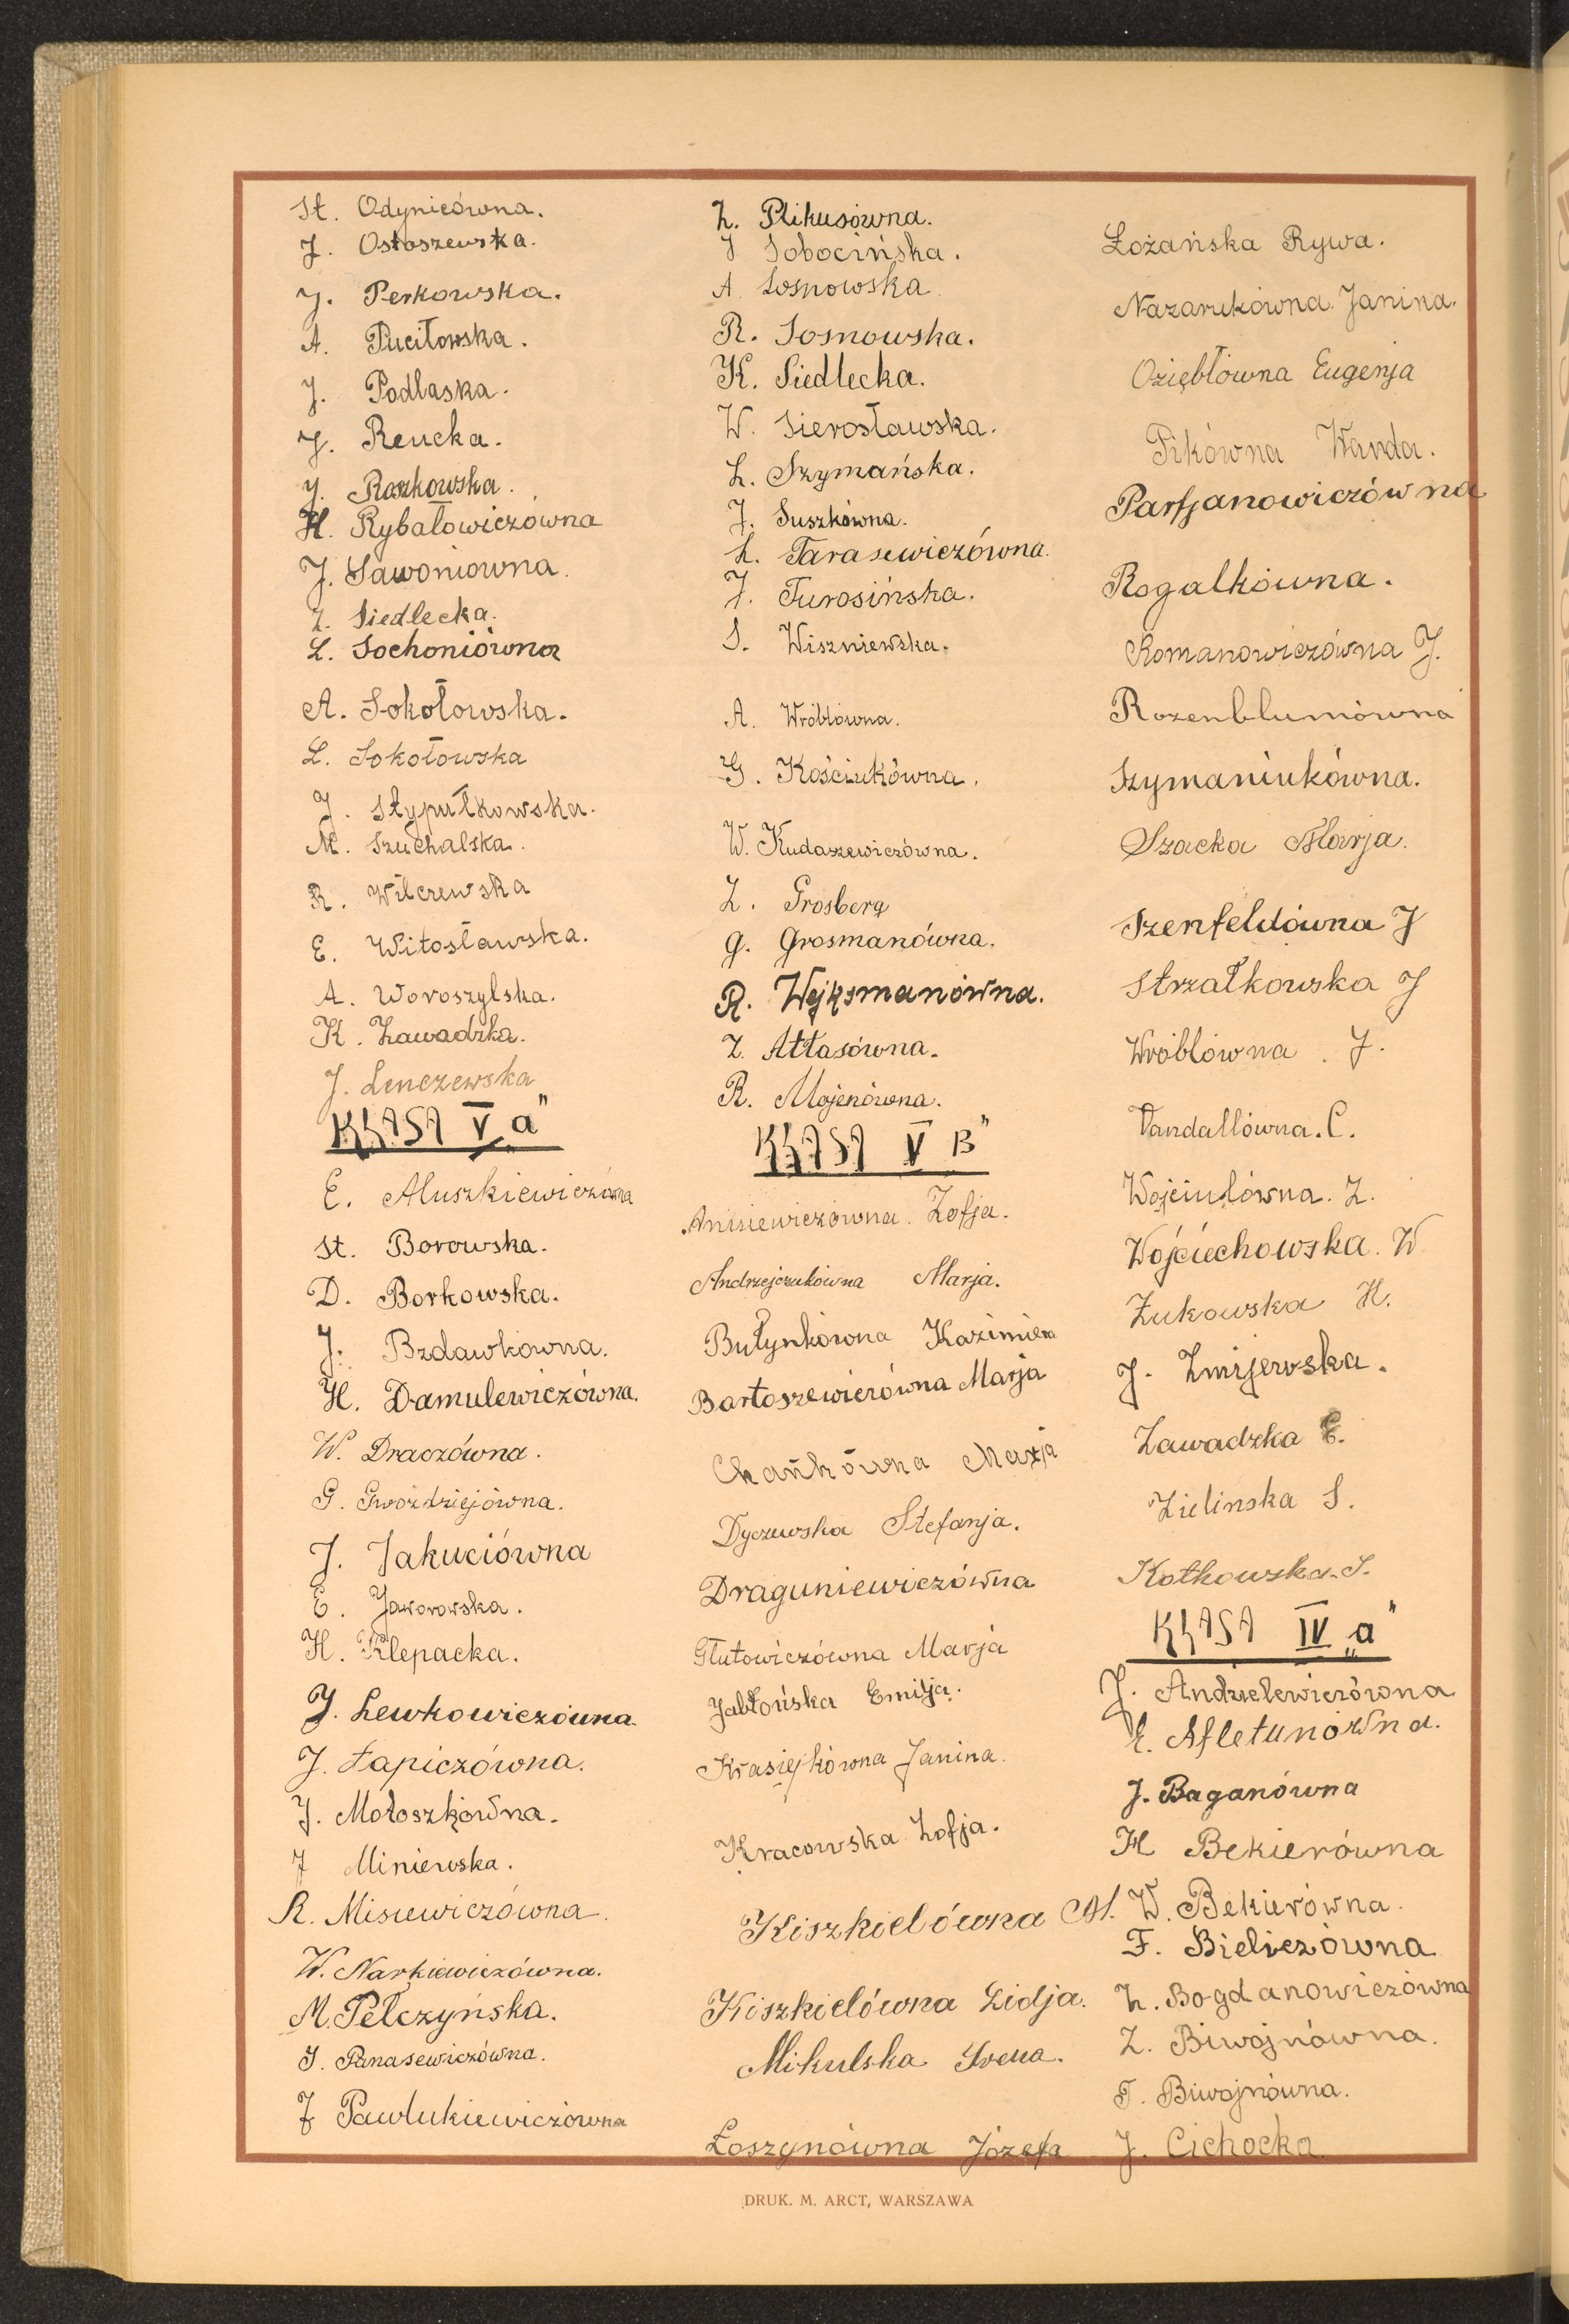 St. Odyniecówna.
J. Ostaszewska.
J. Perkowska.
A. Puciłowska.
J. Podlaska.
J. Reucka.
J. Roszkowska.
H. Rybałowiczówna
J. Sawoniowna.
Z. Siedlecka.
L. Sochoniówna
A. Sokołowska.
L. Sokołowska
J. Stypułkowska.
M. Szuchalska.
R. Wilczewska
E. Witosławska.
A. Woroszylska.
K. Zawadzka.
J. Lenczewska
KLASA V „a"
E. Aluszkiewiczówna
St. Borowska.
D. Borkowska.
J. Bzdawkowna.
H. Damulewiczówna.
W. Draczówna.
G. Gwoździejówna.
J. Jakuciówna
E. Jaworowska.
H. Klepacka.
J. Lewkowiczówna.
J. Łapiczówna.
J. Mołoszkówna.
J Miniewska.
R. Misiewiczówna.
W. Narkiewiczówna.
M. Pełczyńska.
J. Panasewiczówna.
J Pawlukiewiczówna
Z. Plikusówna.
J Sobocińska.
A. Sosnowska
R. Sosnowska.
K. Siedlecka.
W. Sierosławska.
L. Szymańska.
J. Suszkówna.
L. Tarasewiczówna.
J. Turosińska.
S. Wiszniewska.
A. Wróblówna.
G. Kościukówna.
W. Kudaszewiczówna.
Z. Grosberg
G. Grosmanówna.
R. Wejksmanówna.
Z. Atłasówna.
R. Mojenówna.
KLASA V B"
Anisiewiczówna. Zofja.
Andrzejczukówna Marja.
Butynkówna Kazimiera
Bartoszewiczówna Marja
Chańkówna Marja
Dyczewska Stefanja.
Draguniewiczówna
Glutowiczówna Marja
Jabłońska Emilja.
Krasiejkówna Janina.
Kracowska Zofja.
Kiszkielówna M.
Kiszkielówna Lidja.
Mikulska Irena.
Łoszynówna Józefa
Łożańska Rywa.
Nazarukówna. Janina.
Oziębłówna Eugenja
Pikówna Wanda.
Parfjanowiczówna
Rogalkówna.
Romanowiczówna J.
Rozenblumówna
Szymaniukówna.
Szacka Marja.
Szenfeldówna J
Strzałkowska J
Wróblówna. J.
Vandallówna. C.
Wojciulówna. Z.
Wojciechowska. W
Żukowska H.
J. Zmijewska.
Zawadzka E.
Zielinska S.
Kotkowska. S.
KLASA IV „a"
J. Andzielewiczówna
E. Afletunówna.
J. Baganówna
H Bekierówna
W. Bekierówna.
F. Bieliczówna
Z. Bogdanowiczówna
Z. Biwojnówna.
T. Biwojnówna.
J. Cichocka
DRUK. M. ARCT, WARSZAWA